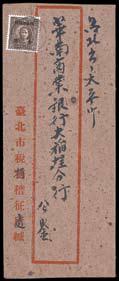 台北市太平町
華南商業銀行大稻埕分行
公鑒
臺北市稅捐稽征處緘